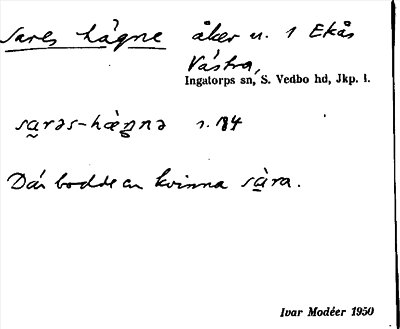 Sares hägne åker u. 1 Ekås
Västra,
Ingatorps sn, S. Vedbo hd, Jkp. l.
sa̰rəs-hæŋnə s. 184
Där bodde en kvinna sàra.
Ivar Modéer 1950